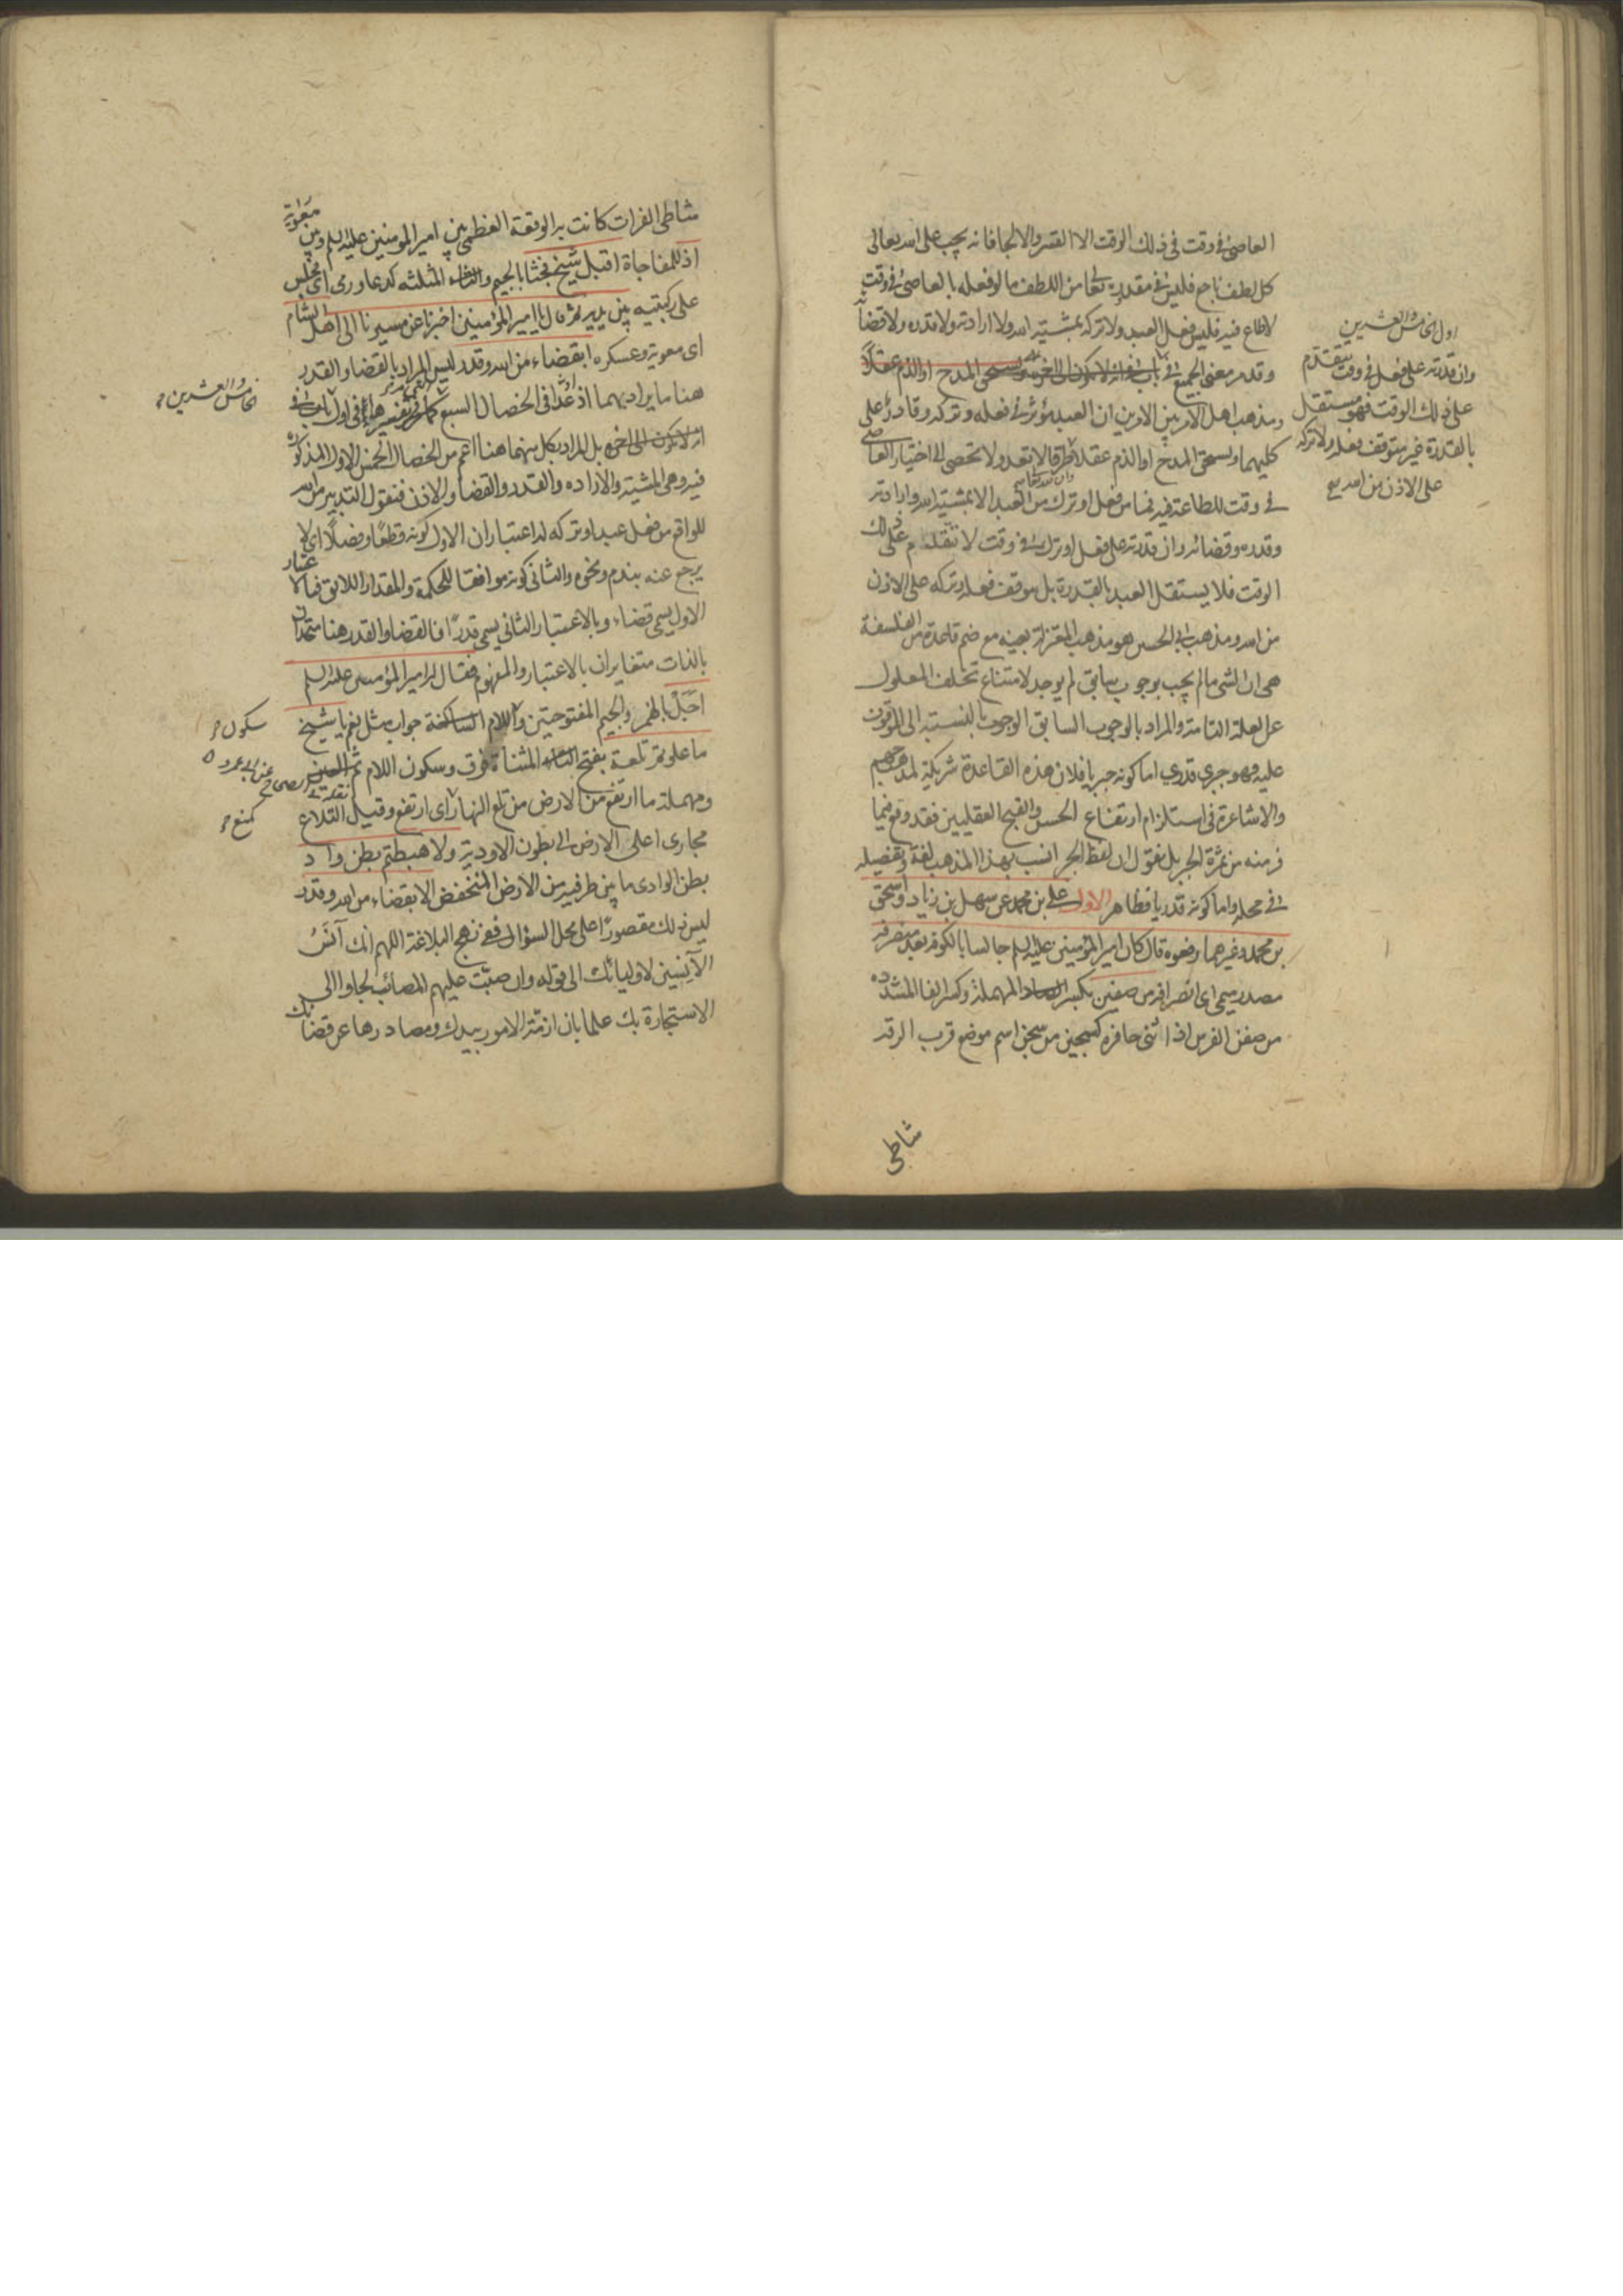 العاصي في وقت في ذلك الوقت الا القسر والالجا فانه يجب على الله تعالى
كل لطف ناجع فليس في مقدوره تعالى من اللطف ما لو فعله بالعاصي في وقت
لاطاع فيه فليس فعل العبد ولا تركه بمشيته الله ولا ارادته ولا قدره ولا قضائه
وقد مر معنى الجميع في
ومذهب اهل الامر بين الامرين ان العبد مؤثر في فعله وتركه وقادر على
كليهما ويستحق المدح او الذم عقلا لا تعد ولا تحصى الى اختيار العاصي
في وقت للطاعة فيه فما من فعل او ترك من العبد الا بمشية الله وارادته
وقدره وقضائه وان قدرته على فعل او ترك في وقت لا تتقدم على ذلك
الوقت فلا يستقل العبد بالقدرة بل موقف فعله وتركه على الاذن
من الله ومذهب ابي الحسين هو مذهب المعتزلة بعينه مع ضم قاعدة من الفلسفة
هي ان الشي ما لم يجب بوجوب سابق لم يوجد لامتناع تخلف المعلول
عن العلة التامة والمراد بالوجوب السابق الوجوب بالنسبة الى الموقوف
عليه فهو جبري قدري اما كونه جبريا فلان هذه القاعدة شريكة لمذهب جهم
والاشاعرة في استلزام ارتفاع الحسن والقبح العقليين فقد وقع فيما
فر منه من ثمرة الجبر بل نقول ان لفظ الجبر انسب بهذا المذهب لغة وتفصيله
في محله واما كونه قدريا فظاهر الاول علي بن محمد عن سهل بن زياد واسحق
بن محمد وغيرهما رفعوه قال كان امير المؤمنين عليه السلم جالسا بالكوفة بعد منصرفه
مصدر ميمي اي انصرافه من صفين بكسر الصاد المهملة وكسر الفا المشددة
من صفن الفرس اذا اثنى حافره كسجين من سجن اسم موضع قرب الرقة
شاطى
اول الخامس والعشرين
وان قدرته على فعل في وقت يتقدم
على ذلك الوقت فهو مستقل
بالقدرة غير متوقف فعله ولا تركه
على الاذن من الله
شاطى الفرات كانت به الوقعة العظمى بين امير المومنين عليه السلم وبين معوية
اذ للمفاجاة اقبل شيخ فجثا بالجيم والثاء المثلثه كدعا ورمى اي جلس
على ركبتيه بين يديه ثم قال يا امير المؤمنين اخبرنا عن مسيرنا الى اهل الشام
اي معوية وعسكره ابقضاء من الله وقدر ليس المراد بالقضا والقدر
هنا ما يراد بهما اذ عدا في الخصال السبع كما مر في اول باب في
انه لا يكون بل المراد بكل منهما هنا اعم من الخصال الخمس الاول المذكورة
فيه وهي المشية والارادة والقدر والقضا والاذن فنقول التدبير من الله
للواقع من فعل عبد او تركه له اعتباران الاول كونه قطعًا وفصلًا اي لا
يرجع عنه بندم ونحوه والثاني كونه موافقا للحكمة والمقدار اللائق فبالاعتبار
الاول يسمى قضاء وبالاعتبار الثاني يسمى قدرًا فالقضا والقدر هنا متحدان
بالذات متغايران بالاعتبار والمفهوم فقال له امير المؤمنين عليه السلم
اجَلْ بالهمز والجيم المفتوحتين واللام الساكنة جواب مثل نعم يا شيخ
ما علوتم تلعة بفتح التاء المثناة فوق وسكون اللام ثم العين
ومهملة ما ارتفع من الارض من تلع النهار اي ارتفع وقيل التلاع
مجاري اعلى الارض الى بطون الاودية ولا هبطتم بطن واد
بطن الوادي ما بين طرفيه من الارض المنخفض الا بقضاء من الله وقدر
ليس ذلك مقصورًا على محل السؤال ففي نهج البلاغة اللهم انك آنَسُ
الآنِسين لاوليائك الى قوله وان صبّت عليهم المصائب لجاوا الى
الاستجارة بك علما بان ازمّة الامور بيدك ومصادرها عن قضائك
خامس والعشرين
سكون
كمنع